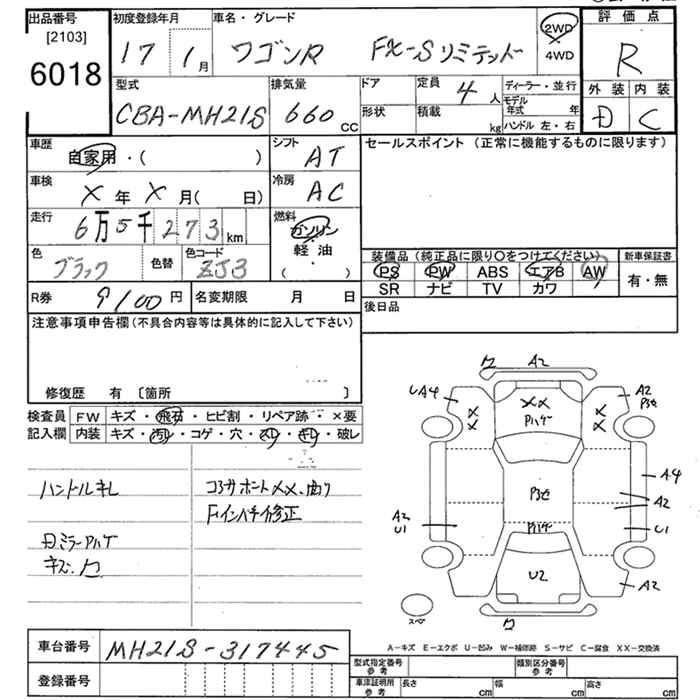 出品番号 初度登録年月 車名・グレード 評価点
[2103]
6018
17 1月 ワゴンR FX-Sリミテッド 2WD R
4WD
型式 排気量 ドア 定員 4人 ディーラー・並行 外装 内装
CBA-MH21S 660cc 形状 積載 kg モデル年式 年 D C
ハンドル 左・右
車歴 シフト セールスポイント (正常に機能するものに限ります)
自家用・( ) AT
車検 冷房
X年X月( 日) AC
走行 6万5千273km 燃料
ガソリン
軽油
( ・ )
色 色替 色コード 装備品 (純正品に限り○をつけてください) 新車保証書
ブラック ZJ3 PS PW ABS エアB AW 有・無
SR ナビ TV カワ
R券 9100円 名変期限 月 日 後日品
注意事項申告欄 (不具合内容等は具体的に記入して下さい)
修復歴 有 〔箇所 〕
検査員 FW キズ・飛石・ヒビ割・リペア跡・×要
記入欄 内装 キズ・汚れ・コゲ・穴・スレ・キレ・破レ
ハンドルキレ
コアサポートXX.曲り
Fインパネ修正
キズ.ワ
ワ A2
A4 A2
XX
Pハゲ
P3セ
A4
A2
A2 U1
U1
Pハゲ
U2
A2
ワ
スペ
A−キズ E−エクボ U−凹み W−補修跡 S−サビ C−腐食 XX−交換済
車台番号 MH21S-317445
登録番号
型式指定番号 参考 類別区分番号 参考
車庫証明用 参考 長さ cm 幅 cm 高さ cm